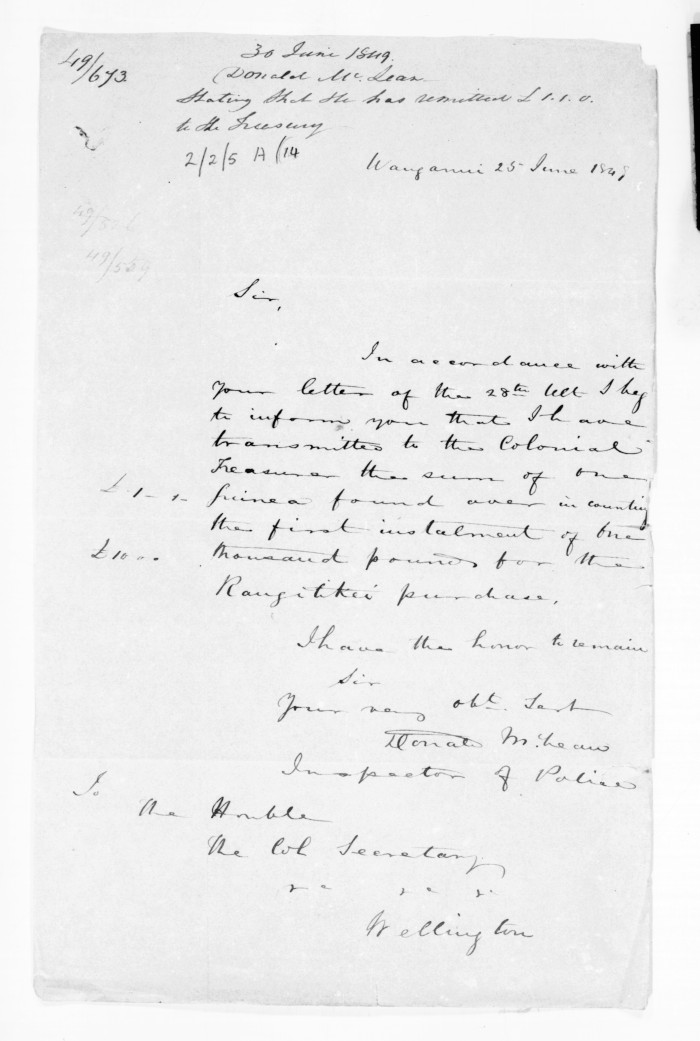 49/673
30 June 1849.
Donald McLean
Stating that he has remitted £1.1.0.
to the Treasury
2/2/5 A/14
Wanganui 25 June 1849
49/516
49/559
Sir,
In accordance with
your letter of the 28th Ult I beg
to inform you that I have
transmitted to the Colonial
Treasurer the sum of One
£1-1-
Guinea found over in counting
the first instalment of One
£10..
thousand pounds for the
Rangitikei purchase.
I have the honor to remain
Sir
Your very obt. Sert
Donald McLean
Inspector of Police
To
The Honble
The Col Secretary
&c &c &c
Wellington